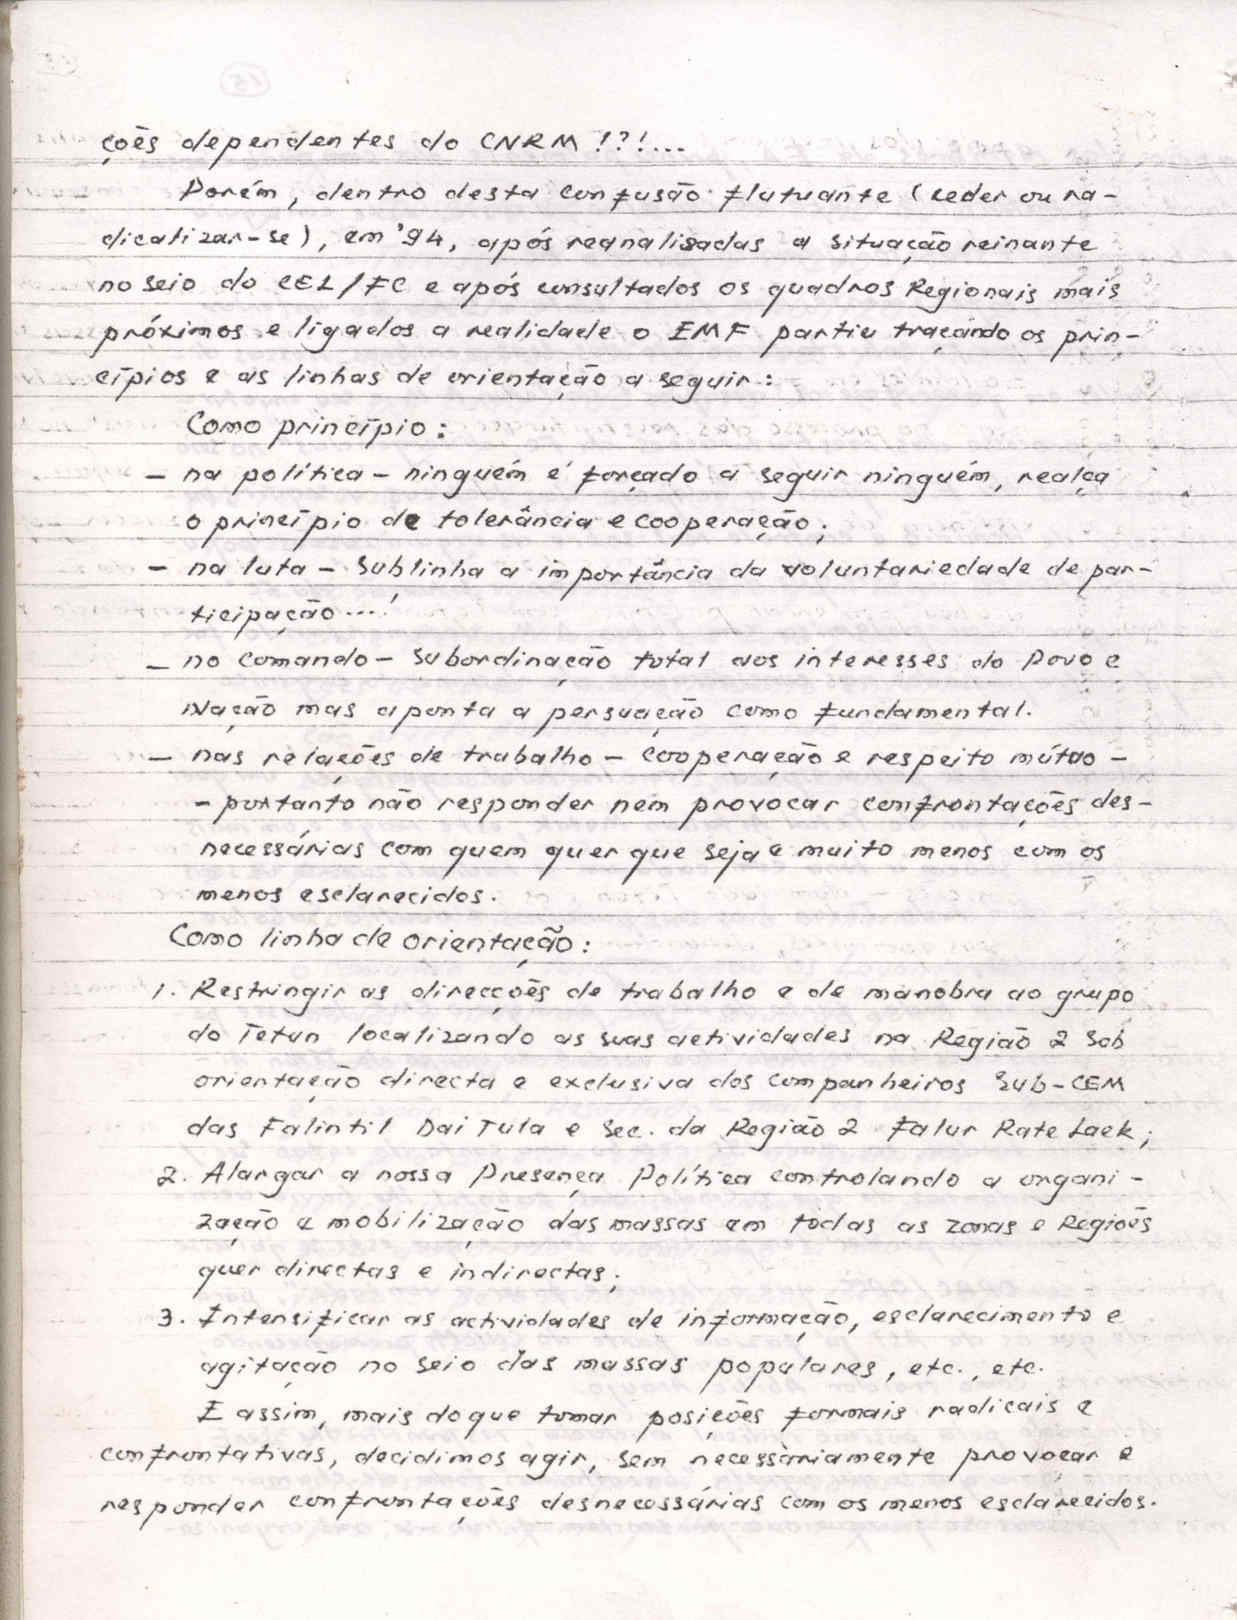 15
ções dependentes do CNRM!?!...
Porém, dentro desta confusão flutuante (ceder ou ra-
dicalizar-se), em '94, após reanalisadas a situação reinante
no seio do CEL/FC e após consultados os quadros Regionais mais
próximos e ligados a realidade o EMF partiu traçando os prin-
cípios e as linhas de orientação a seguir:
Como princípio:
- na política - ninguém é forçado a seguir ninguém, realça
o princípio de tolerância e cooperação;
- na luta - sublinha a importância da voluntariedade de par-
ticipação...!
- no comando - Subordinação total aos interesses do Povo e
Nação mas aponta a persuação como fundamental.
- nas relações de trabalho - cooperação e respeito mútuo -
- portanto não responder nem provocar confrontações des-
necessárias com quem quer que seja e muito menos com os
menos esclarecidos.
Como linha de orientação:
1. Restringir as direcções de trabalho e de manobra ao grupo
do Tetun localizando as suas actividades na Região 2 Sob
orientação directa e exclusiva dos companheiros Sub-CEM
das Falintil Dai Tula e Sec. da Região 2 Falur Rate Laek;
2. Alargar a nossa Presença Política controlando a organi-
zação e mobilização das massas em tòdas as zonas e Regiões
quer directas e indirectas;
3. Intensificar as actividades de informação, esclarecimento e
agitação no seio das massas populares, etc., etc.
E assim, mais do que tomar posições formais radicais e
confrontativas, decidimos agir, sem necessàriamente provocar e
responder confrontações desnecessárias com os menos esclarecidos.